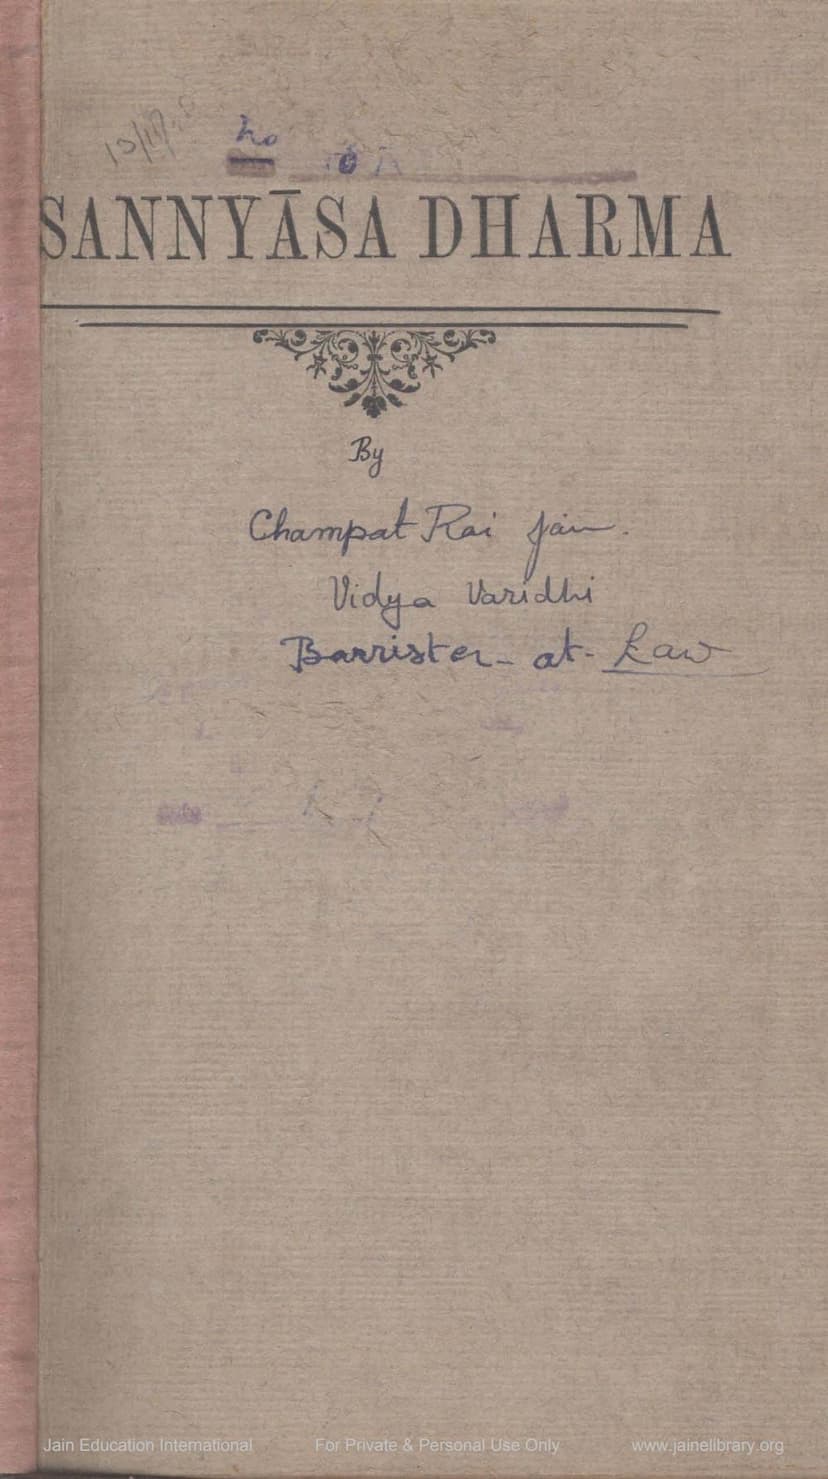 SANNYĀSA DHARMA
By
Champat Rai Jain.
Vidya Varidhi
Barrister-at-Law
Jain Education International For Private & Personal Use Only www.jainelibrary.org